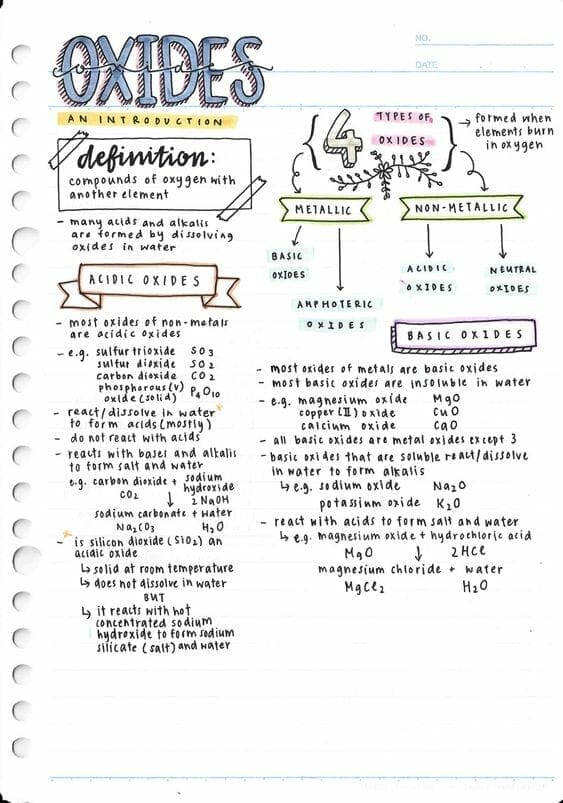 OXIDES
oxides
AN INTRODUCTION
NO.
DATE
definition:
compounds of oxygen with
another element
- many acids and alkalis
are formed by dissolving
oxides in water
4 TYPES OF
OXIDES
→ formed when
elements burn
in oxygen
METALLIC
NON-METALLIC
BASIC
OXIDES
AMPHOTERIC
OXIDES
ACIDIC
OXIDES
NEUTRAL
OXIDES
ACIDIC OXIDES
- most oxides of non-metals
are acidic oxides
- e.g. sulfur trioxide SO3
sulfur dioxide SO2
carbon dioxide CO2
phosphorous(V)
oxide(solid) P4O10
- react/dissolve in water*
to form acids(mostly)
- do not react with acids
- reacts with bases and alkalis
to form salt and water
e.g. carbon dioxide + sodium
hydroxide
CO2 ↓ 2NaOH
sodium carbonate + water
Na2CO3 H2O
* - is silicon dioxide (SiO2) an
acidic oxide
↳ solid at room temperature
↳ does not dissolve in water
BUT
↳ it reacts with hot
concentrated sodium
hydroxide to form sodium
silicate (salt) and water
BASIC OXIDES
- most oxides of metals are basic oxides
- most basic oxides are insoluble in water
- e.g. magnesium oxide MgO
copper (II) oxide CuO
calcium oxide CaO
- all basic oxides are metal oxides except 3
- basic oxides that are soluble react/dissolve
in water to form alkalis
↳ e.g. sodium oxide Na2O
potassium oxide K2O
- react with acids to form salt and water
↳ e.g. magnesium oxide + hydrochloric acid
MgO ↓ 2HCl
magnesium chloride + water
MgCl2 H2O